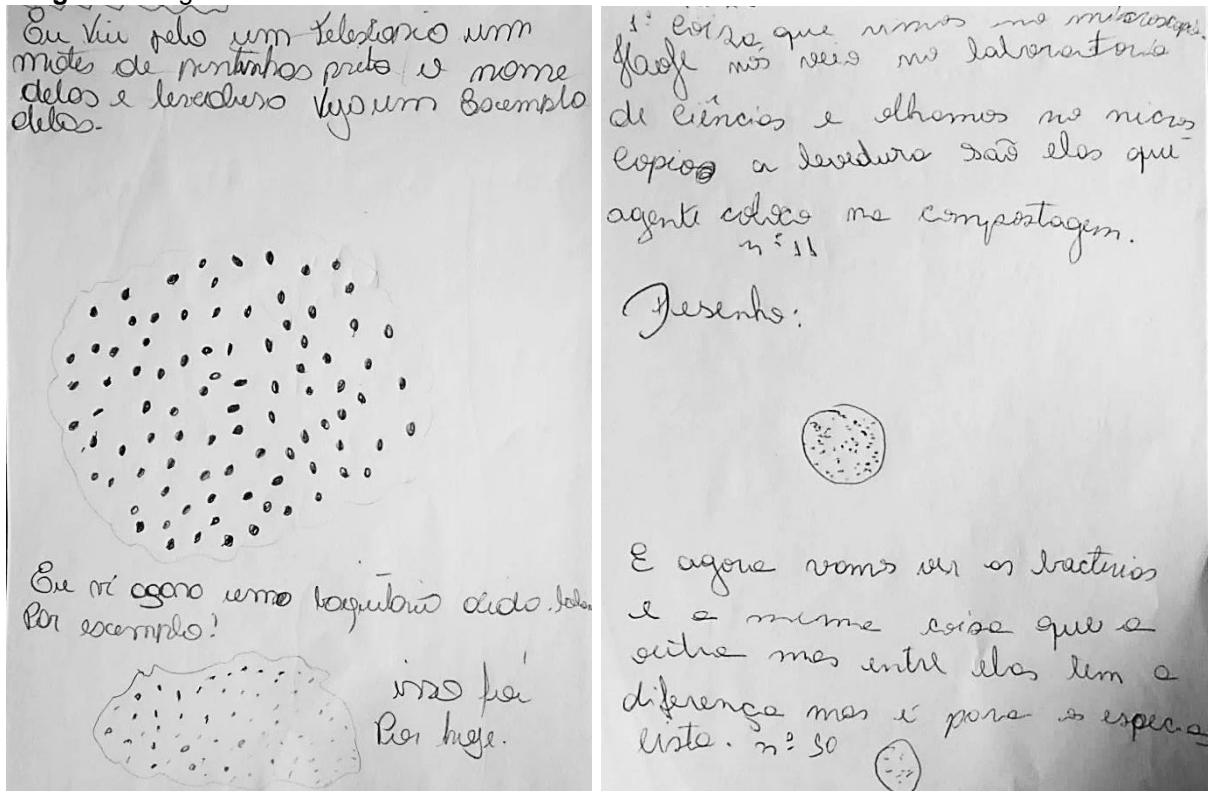 Eu Viu pelo um telescorio um
motes de pintinhos preto o nome
delas e leveduso Vyo um Escemplo
delas.
Eu vi agora uma baquitario acido.
Por escemplo!
isso foi
Por hoge.
1ª Coisa que vimos no microscopi.
Hoge nós veio no laboratorio
de Ciências e olhamos no micros
copio a levedura são elas que
agente coloco na compostagem.
nº 11
Desenho:
E agora vamos ver as bacterias
e a mesma coisa que a
outra mas entre elas tem a
diferença mas é para os especia
lista. nº 30